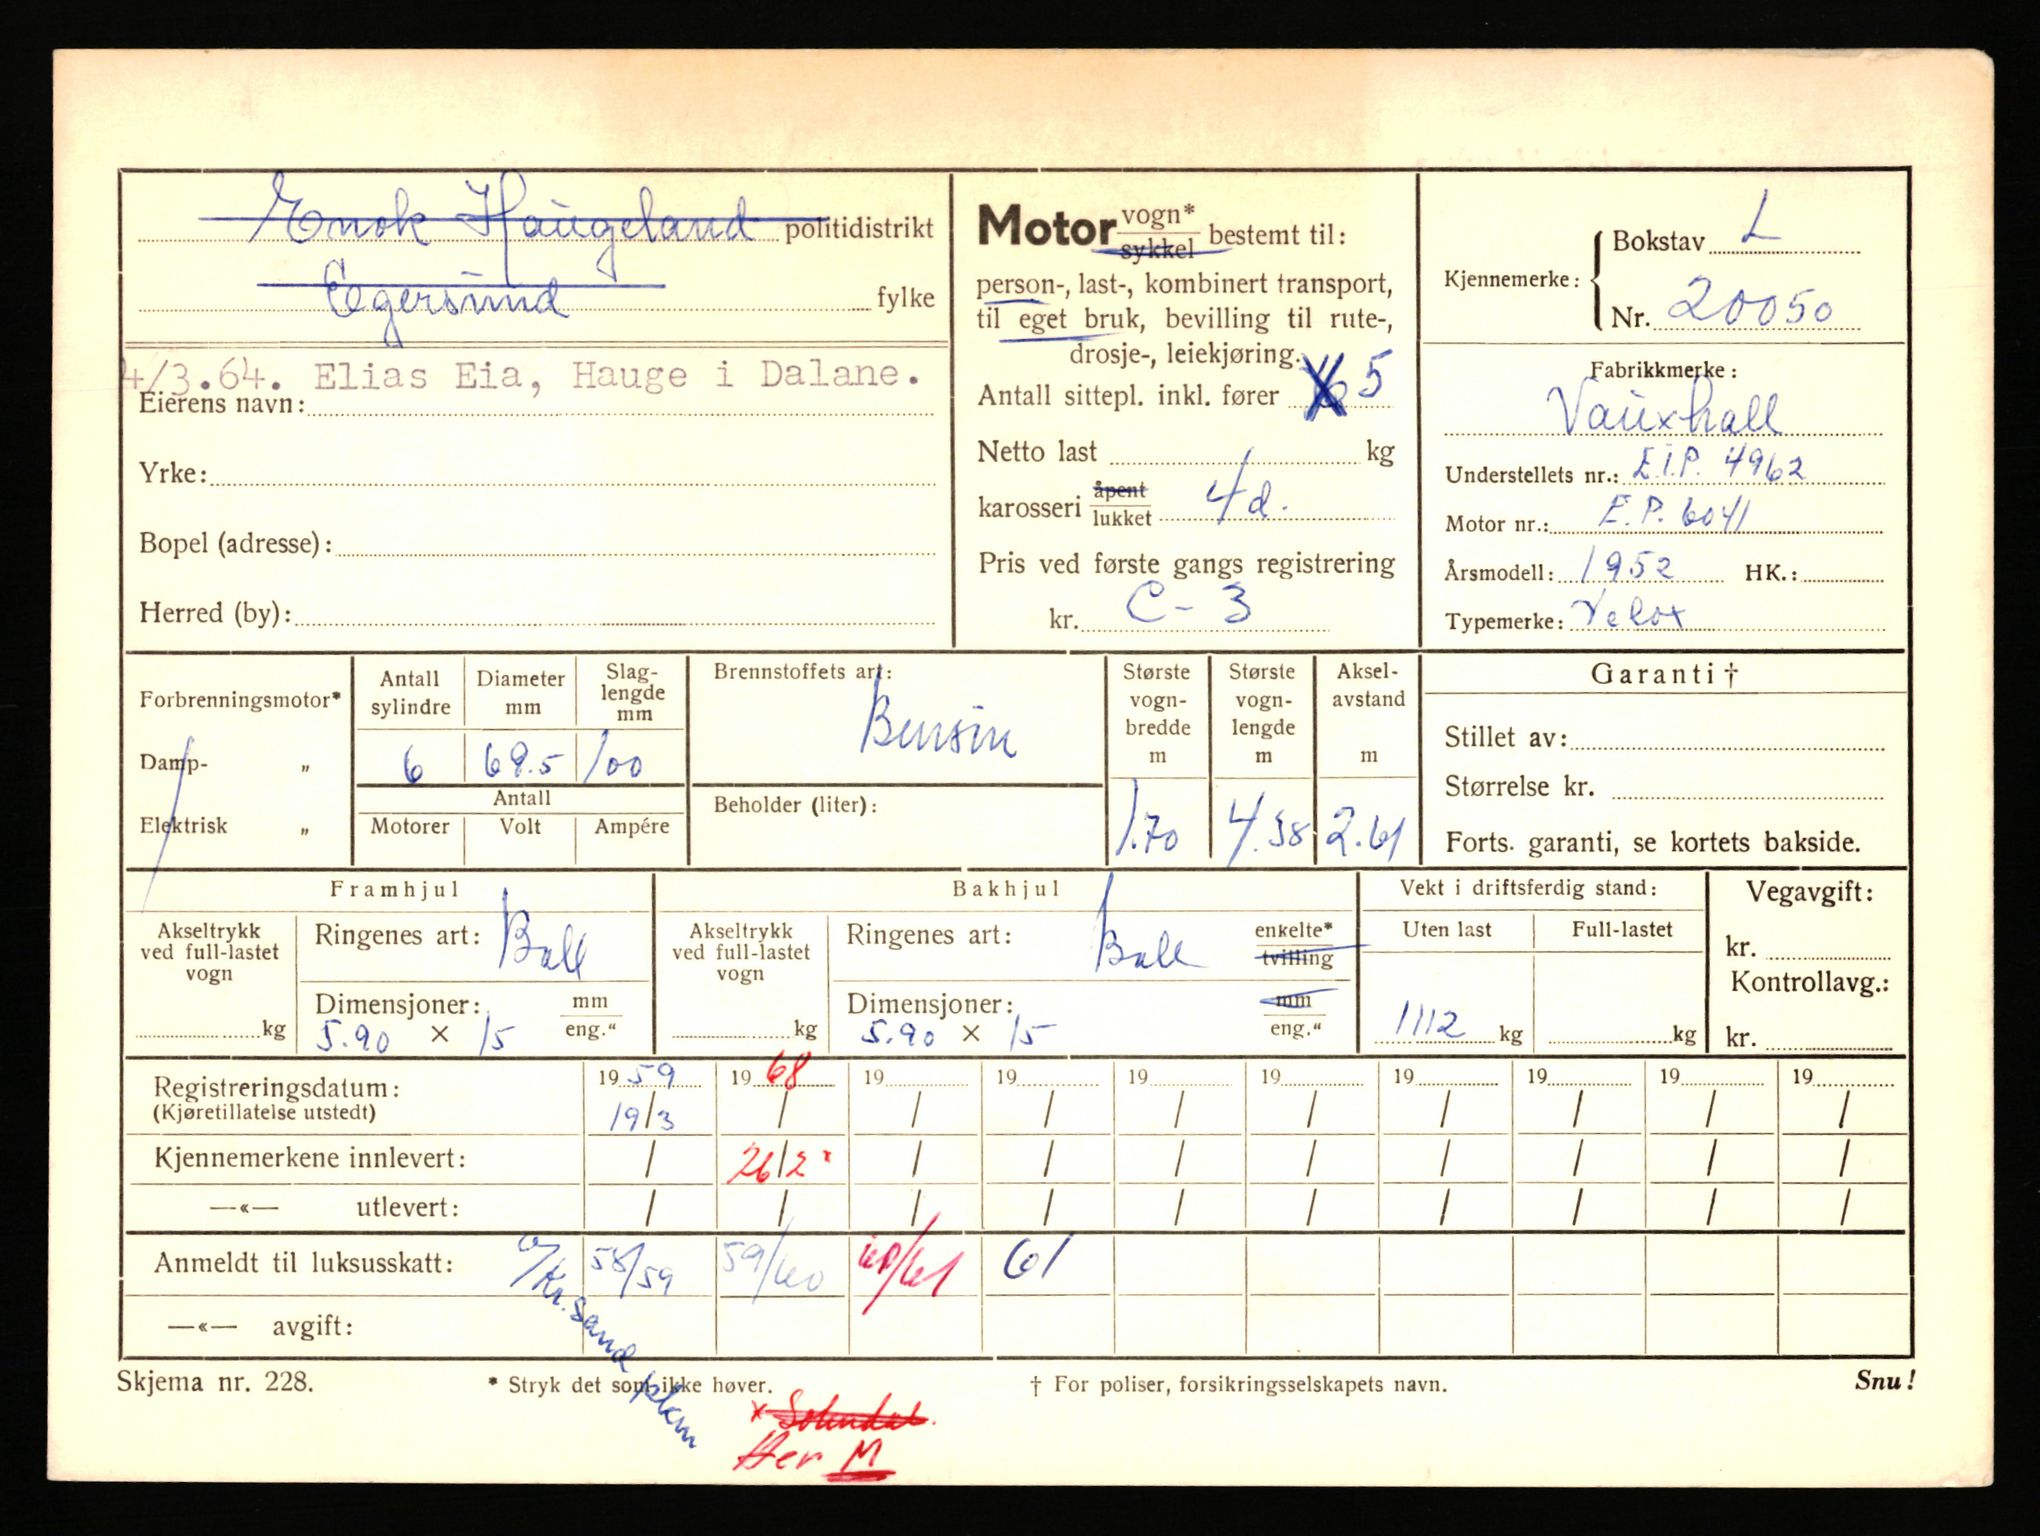 Enok Haugeland politidistrikt
Egersund fylke
4/3.64. Elias Eia, Hauge i Dalane.
Eierens navn:
Yrke:
Bopel (adresse):
Herred (by):
Motor vogn* sykkel bestemt til:
person-, last-, kombinert transport,
til eget bruk, bevilling til rute-,
drosje-, leiekjøring.
Antall sittepl. inkl. fører 5
Netto last kg
karosseri åpent lukket 4 d.
Pris ved første gangs registrering
kr. C-3
Kjennemerke: Bokstav L
Nr. 20050
Fabrikkmerke:
Vauxhall
Understellets nr.: E.I.P. 4962
Motor nr.: E.P. 6041
Årsmodell: 1952 HK.:
Typemerke: Velox
Forbrenningsmotor*
Damp- „
Elektrisk „
Antall sylindre
Diameter mm
Slag-lengde mm
6 69.5 100
Antall
Motorer Volt Ampére
Brennstoffets art:
Bensin
Beholder (liter):
Største vogn-bredde m
1.70
Største vogn-lengde m
4.38
Aksel-avstand m
2.61
Garanti †
Stillet av:
Størrelse kr.
Forts. garanti, se kortets bakside.
Framhjul
Akseltrykk ved full-lastet vogn
kg
Ringenes art: Ball
Dimensjoner: mm eng."
5.90 × 15
Bakhjul
Akseltrykk ved full-lastet vogn
kg
Ringenes art: Ball enkelte* tvilling
Dimensjoner: mm eng."
5.90 × 15
Vekt i driftsferdig stand:
Uten last Full-lastet
1112 kg kg
Vegavgift:
kr.
Kontrollavg.:
kr.
Registreringsdatum: 1959 1968 19 19 19 19 19 19 19 19
(Kjøretillatelse utstedt) 19/3 / / / / / / / / /
Kjennemerkene innlevert: / 26/2 x / / / / / / / /
—«— utlevert: / / / / / / / / / /
Anmeldt til luksusskatt: 58/59 59/60 60/61 61
Kr.sand
—«— avgift:
Skjema nr. 228.
* Stryk det som ikke høver.
† For poliser, forsikringsselskapets navn.
Snu!
x Solundal.
Her M